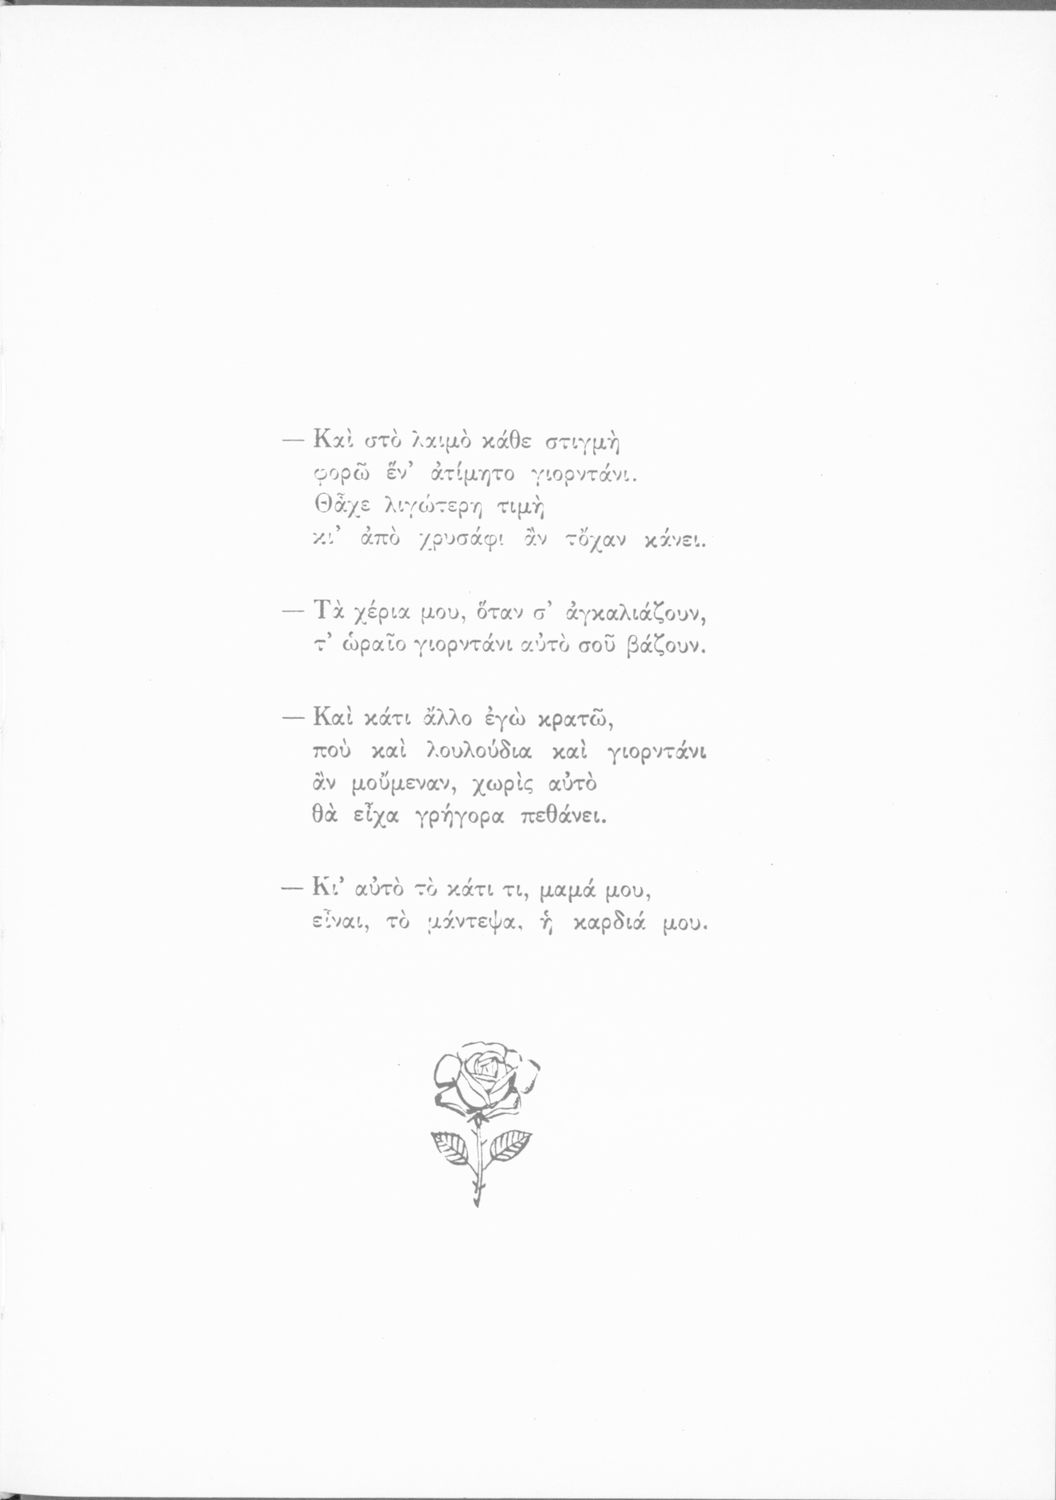 — Καὶ στὸ λαιμὸ κάθε στιγμὴ
φορῶ ἕν’ ἀτίμητο γιορντάνι.
Θἆχε λιγώτερη τιμὴ
κι’ ἀπὸ χρυσάφι ἂν τὄχαν κάνει.
— Τὰ χέρια μου, ὅταν σ’ ἀγκαλιάζουν,
τ’ ὡραῖο γιορντάνι αὐτὸ σοῦ βάζουν.
— Καὶ κάτι ἄλλο ἐγὼ κρατῶ,
ποὺ καὶ λουλούδια καὶ γιορντάνι
ἂν μοὔμεναν, χωρὶς αὐτὸ
θὰ εἶχα γρήγορα πεθάνει.
— Κι’ αὐτὸ τὸ κάτι τι, μαμά μου,
εἶναι, τὸ μάντεψα, ἡ καρδιά μου.